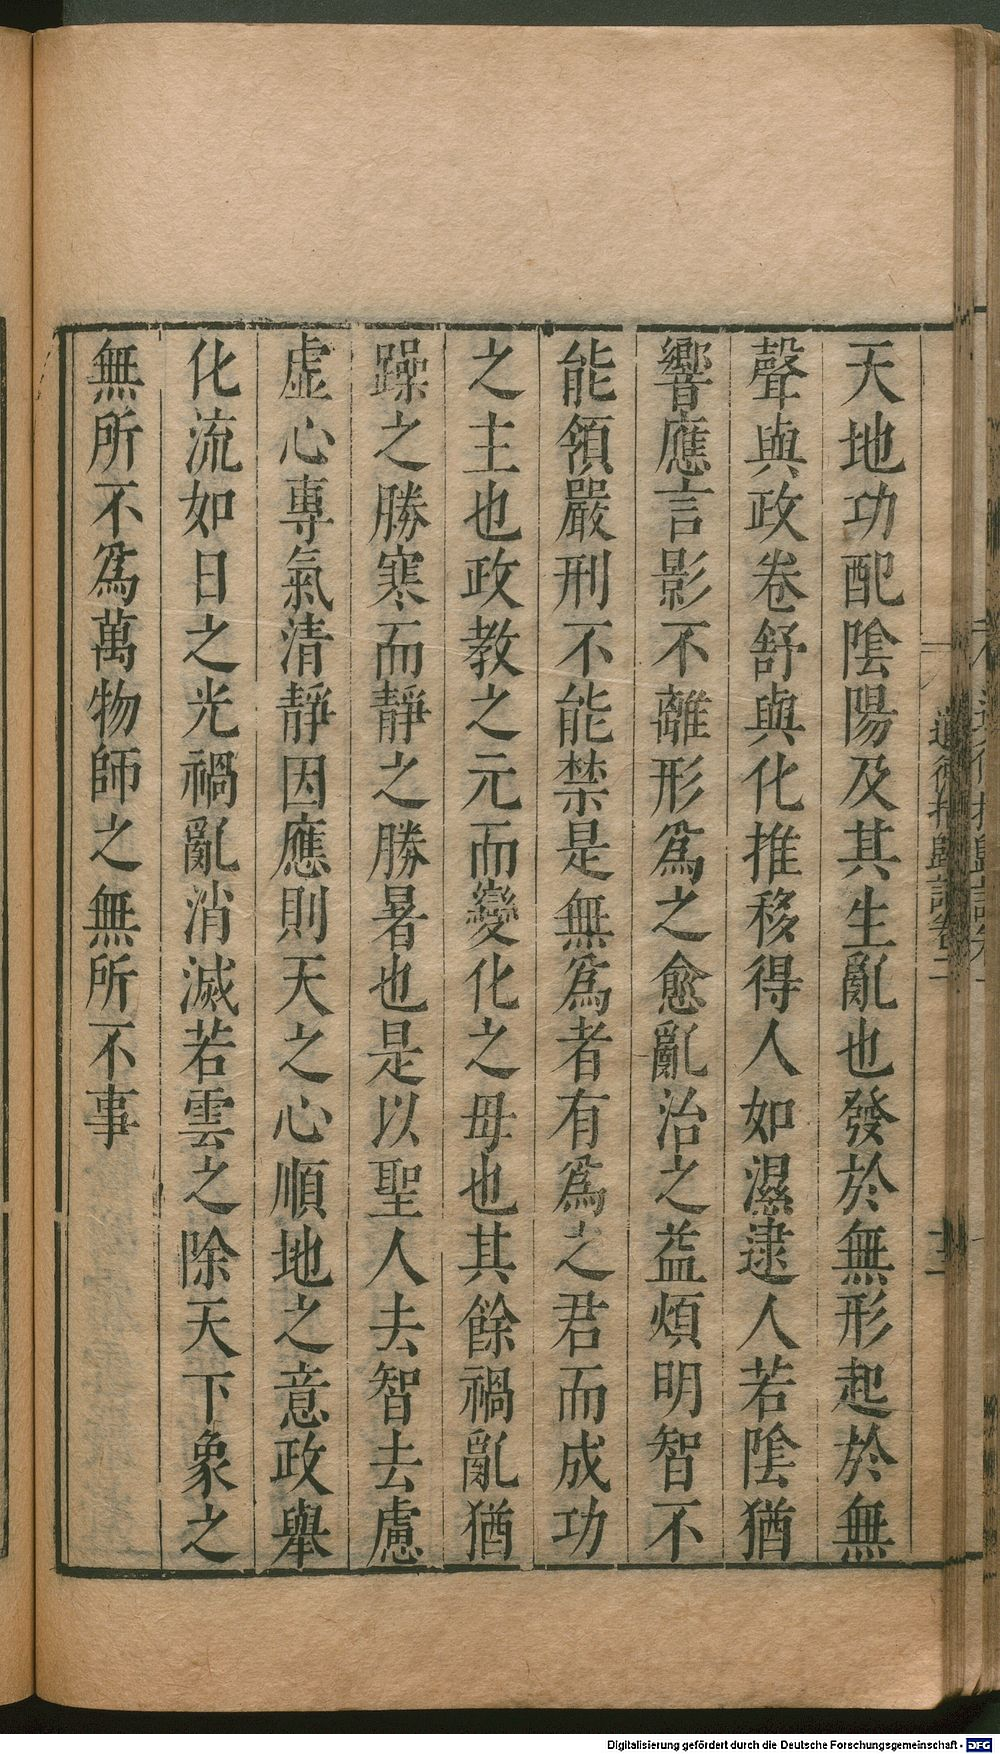 天地功配陰陽及其生亂也發於無形起於無
聲與政卷舒與化推移得人如濕逮人若陰猶
響應言影不離形爲之愈亂治之益煩明智不
能領嚴刑不能禁是無爲者有爲之君而成功
之主也政教之元而變化之毋也其餘禍亂猶
躁之勝寒而靜之勝暑也是以聖人去智去慮
虛心專氣清靜因應則天之心順地之意政舉
化流如日之光禍亂消滅若雲之除天下象之
無所不爲萬物師之無所不事
Digitalisierung gefördert durch die Deutsche Forschungsgemeinschaft - DFG